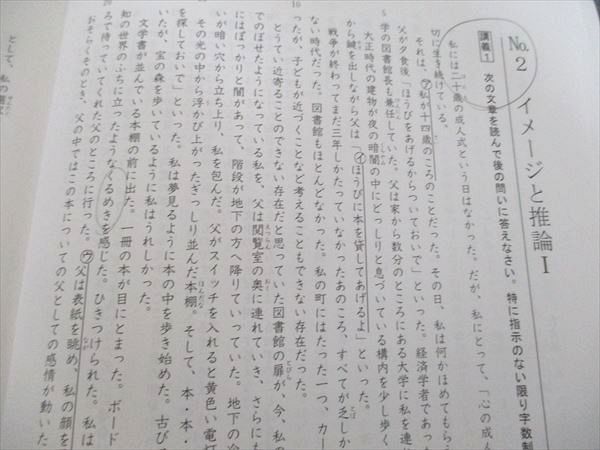 No.2 イメージと推論Ⅰ
講義1 次の文章を読んで後の問いに答えなさい。特に指示のない限り字数制
私には二十歳の成人式という日はなかった。だが、私にとって、「心の成人
切に生き続けている。
それは、㋐私が十四歳のころのことだった。その日、私は何かほめてもら
父が夕食後「ほうびをあげるからついておいで」といった。経済学者であっ
5
学の図書館長も兼任していた。父は家から数分のところにある大学に私を連
大正時代の建物が夜の暗闇の中にどっしりと息づいている構内を少し歩く
から鍵を出しながら父は「㋑ほうびに本を貸してあげるよ」といった。
戦争が終わってまだ三年しかたっていなかったあのころ、すべてが乏しか
ない時代だった。図書館もほとんどなかった。私の町にはたった一つ、カー
10
ったが、子どもが近づくことなど考えることもできない存在だった。
とうてい近寄ることのできない存在だと思っていた図書館の扉が、今、私の
でのぼせたようになっている私を、父は閲覧室の奥に連れていき、さらにも
にはぽっかりと闇があって、階段が地下の方へ降りていっていた。地下の冷
いが暗い穴から立ち上り、私を包んだ。父がスイッチを入れると黄色い電灯
その光の中から浮かび上がったぎっしり並んだ本棚。そして、本・本・
を探しておいで」といった。私は夢見るように本の中を歩き始めた。古びる
いたが、宝の森を歩いているように私はうれしかった。
文学書が並んでいる本棚の前に出た。一冊の本が目にとまった。ボード
知の世界のふちに立ったようなくるめきを感じた。ひきつけられた。私は
ろで待っていてくれた父のところに行った。㋒父は表紙を眺め、私の顔を
おそらくそのとき、父の中ではこの本についての父としての感情が動いた
として、私の